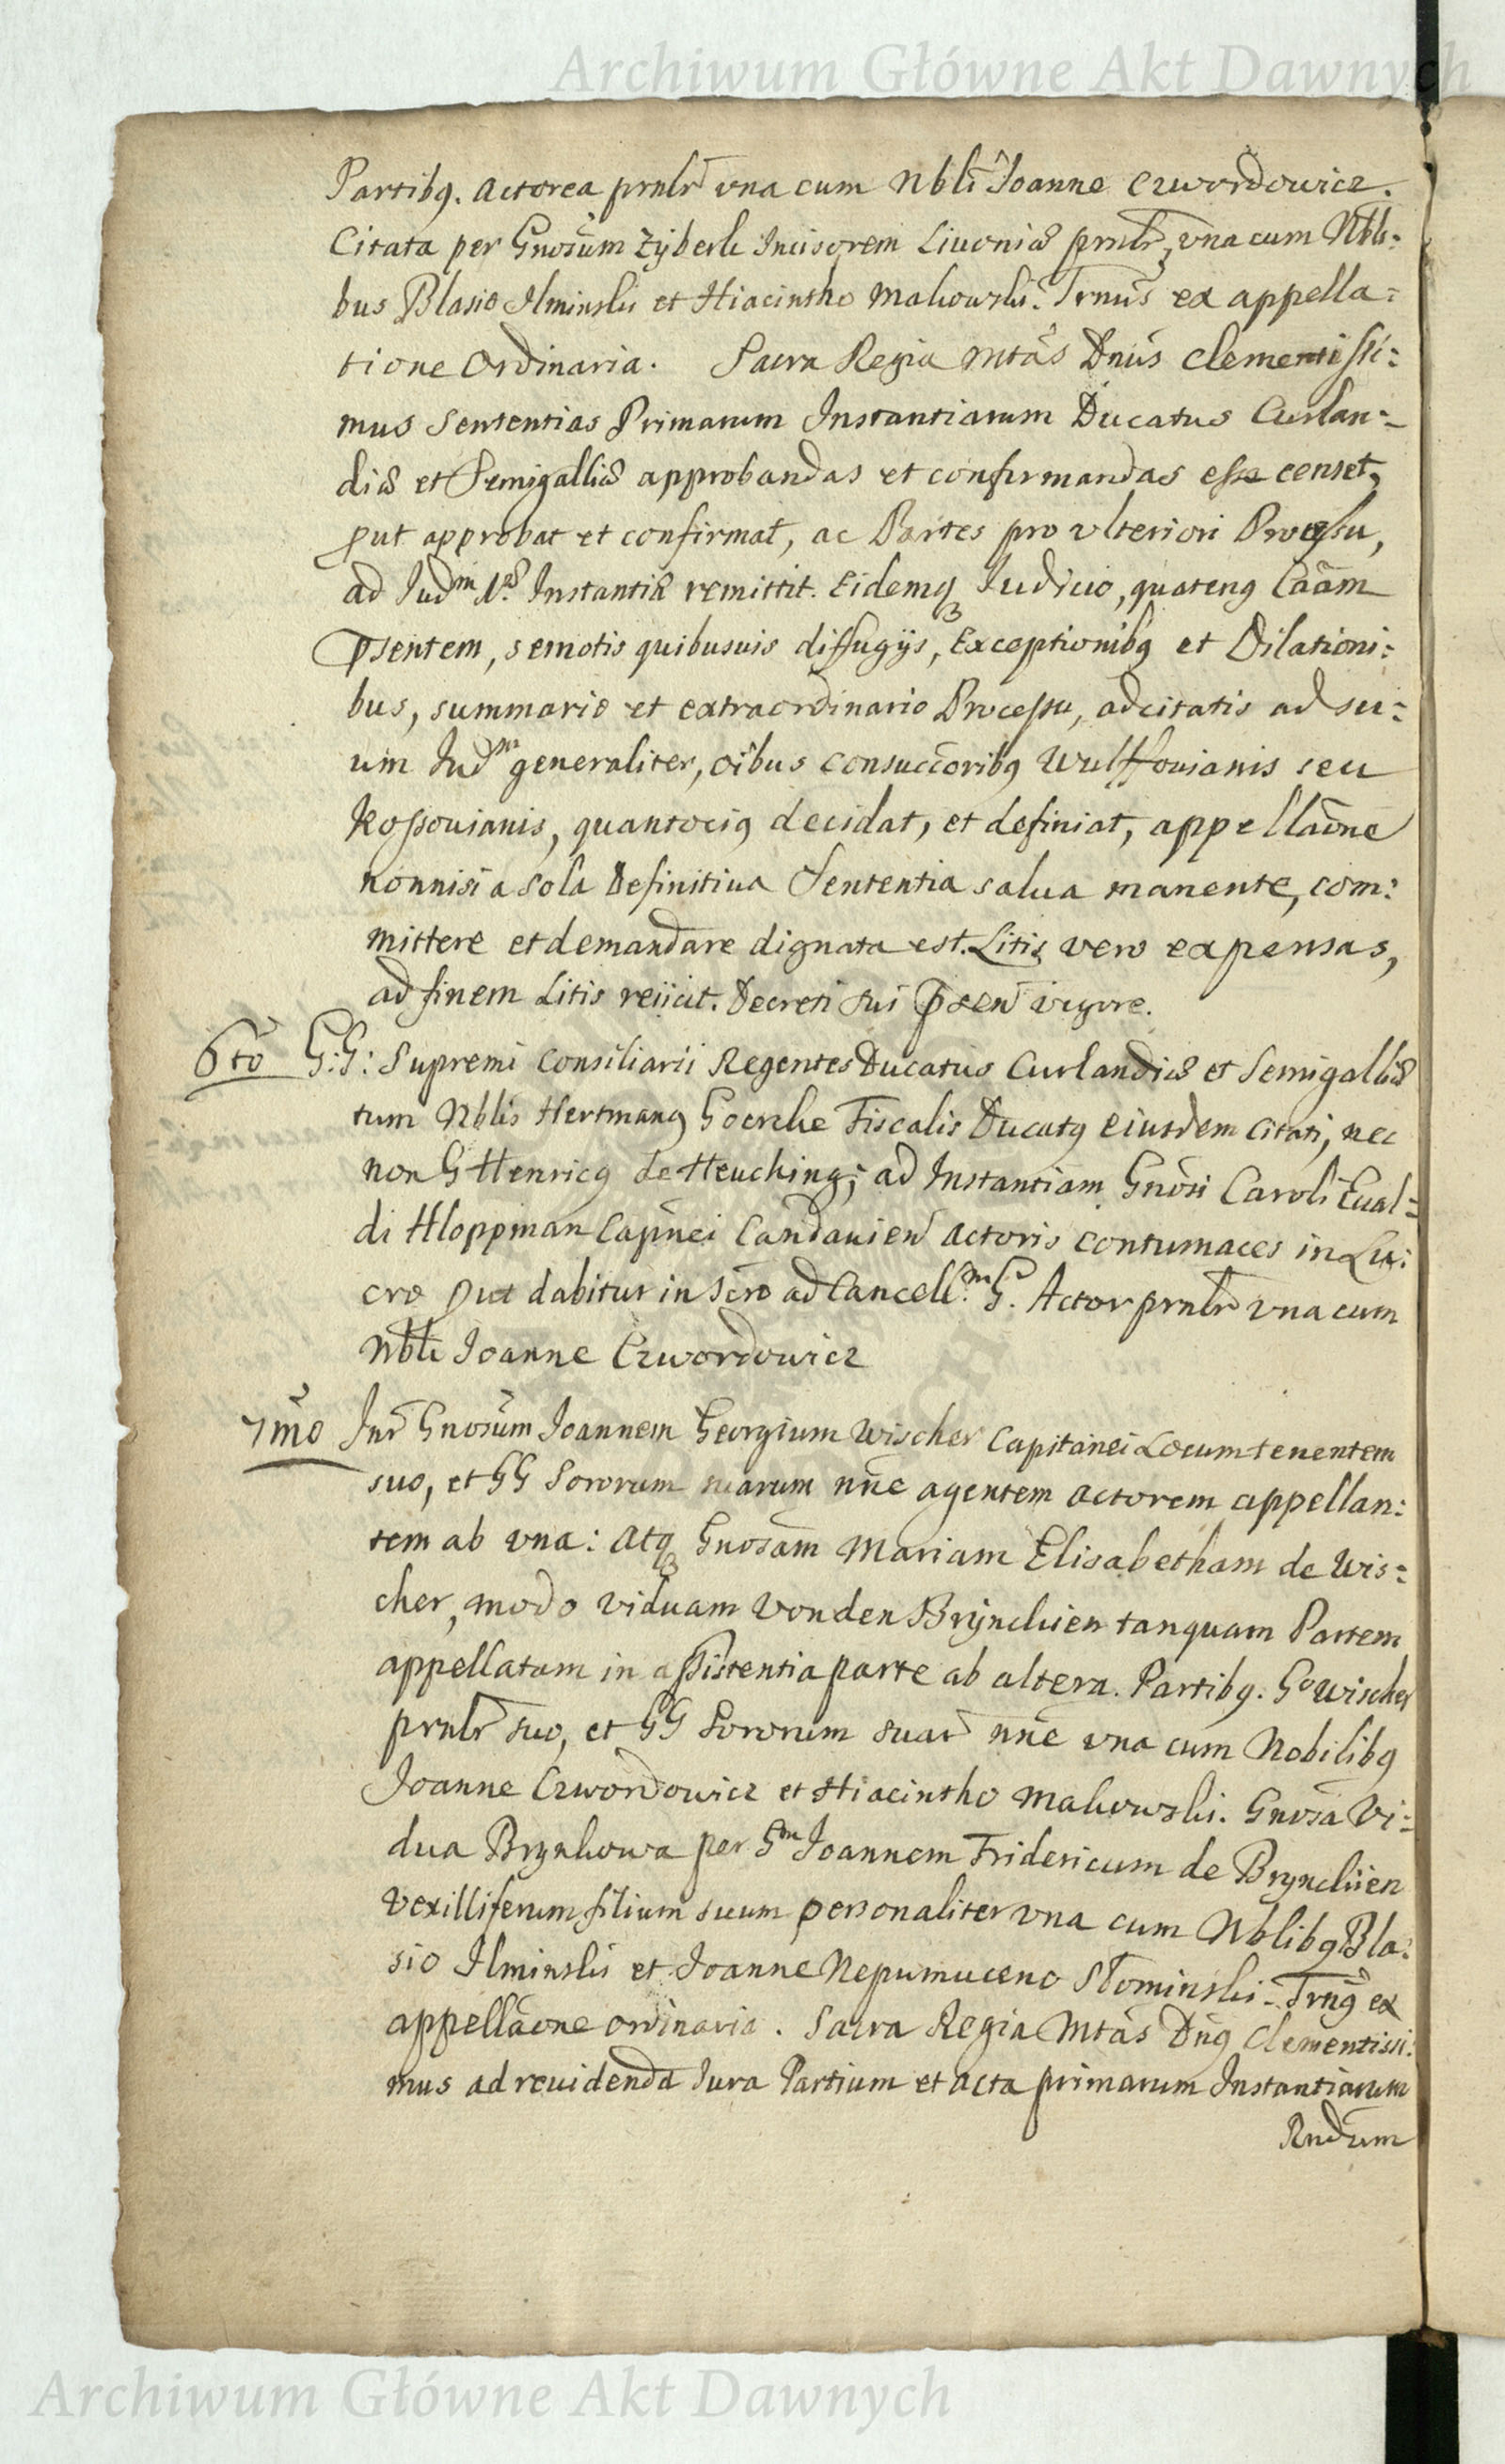 Archiwum Główne Akt Dawnych
Partibq. Actorea prnlr una cum Nbli Joanne Czwordowicz.
Citata per Gnosum Zyberk Incisorem Livoniæ prnlr, una cum Nbli=
bus Blasio Ilminski et Hiacintho Makowski. Trnus ex appella=
tione Ordinaria. Sacra Regia Mtas Dnus Clementissi=
mus Sententias Primarum Instantiarum Ducatus Curlan=
diæ et Semigalliæ approbandas et confirmandas esse censet,
put approbat et confirmat, ac Partes pro ulteriori Processu,
ad Judm 1æ Instantiæ remittit. Eidemq Judicio, quatenq Caam
psentem, semotis quibusuis diffugijs, Exceptionibq et Dilationi=
bus, summario et extraordinario Processu, adcitatis ad su=
um Judm generaliter, oibus consuccoribq Wulffouianis seu
Kossouianis, quantociq decidat, et definiat, appellaone
nonnisi a sola Definitiua Sententia salua manente, com=
mittere et demandare dignata est. Litis vero expensas,
ad finem Litis reiicit. Decreti sui psen vigore.
6to G:G: Supremi Consiliarii Regentes Ducatus Curlandiæ et Semigalliæ
tum Nblis Hertmanq Goercke Fiscalis Ducatq eiusdem citati, nec
non G Henricq de Heuching; ad Instantiam Gnosi Caroli Eual=
di Kloppman Capnei Candauien Actoris contumaces in Lu=
cro put dabitur in Scro ad Cancellm G. Actor prnlr una cum
Nbli Joanne Czwordowicz
7mo Inr Gnosum Joannem Georgium Wischer Capitanei Locumtenentem
suo, et GG Sororum suarum nne agentem Actorem appellan=
tem ab una: atq Gnosam Mariam Elisabetham de Wis=
cher, modo viduam vonden Bryncken tanquam Partem
appellatam in assistentia parte ab altera. Partibq. Gs Wischer
prnlr suo, et GG Sororum suar nne una cum Nobilibq
Joanne Czwordowicz et Hiacintho Makowski. Gnosa Vi=
dua Brynkowa per Gm Joannem Fridericum de Bryncken
Vexilliferum filium suum personaliter una cum Nblibq Bla=
sio Ilminski et Joanne Nepumuceno Słominski. Trnq ex
appellaone ordinaria. Sacra Regia Mtas Dnq Clementissi=
mus ad reuidenda Jura Partium et acta primarum Instantiarum
Rndum
Archiwum Główne Akt Dawnych